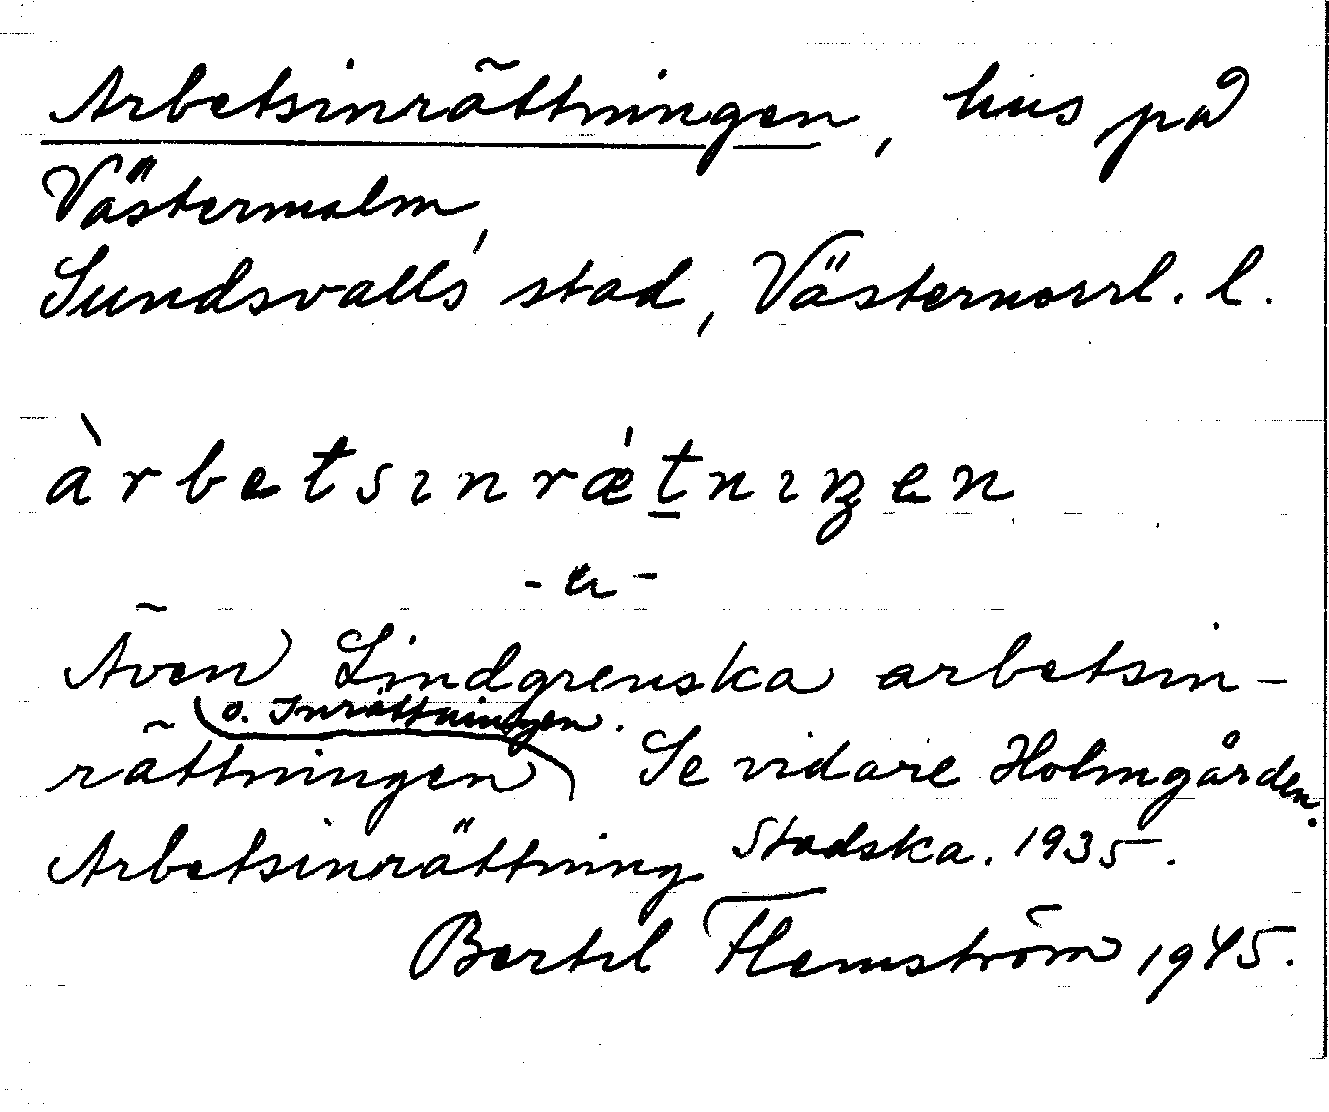 Arbetsinrättningen, hus på
Västermalm,
Sundsvalls stad, Västernorrl. l.
àrbetsınrǽt̲nıŋen
- a -
Även Lindgrenska arbetsin-
o. Inrättningen.
rättningen Se vidare Holmgården.
Arbetsinrättning Stadska. 1935.
Bertil Flemström 1945.